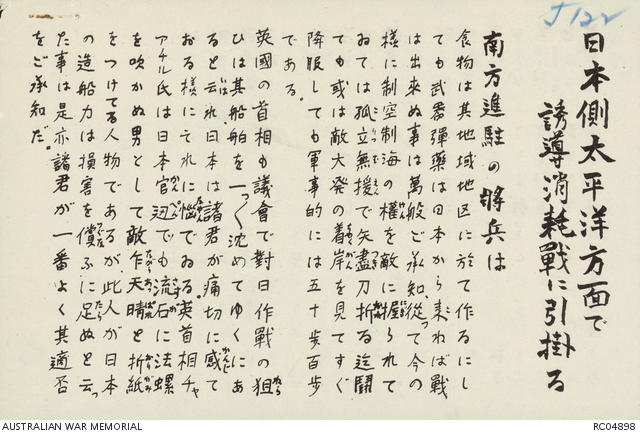 J122
日本側太平洋方面で
誘導消耗戰に引掛る
南方進駐の將兵は
食物は其地域地区に於て作るにし
ても武器彈藥は日本から来ねば戰
は出來ぬ事は萬般ご承知、從って今の
樣に制空制海の權を敵に握られて
ゐては孤立無援で矢盡刀折る迄鬪
ても或は敵大発の着岸を見てすぐ
降服しても軍事的には五十步百步
である。
英國の首相も議會で對日作戰の狙
ひは其船舶を一つ一つ沈めてゆくにあ
ると云れ日本は諸君が痛切に感て
おる樣にそれに惱でゐる。英首相チャ
アチル氏は日本官辺でも流石に法螺
を吹かぬ男として敵乍天晴と折紙
をつけてる人物であるが、此人が日本
の造船力は損害を償ふに足ぬと云っ
た事は是亦諸君が一番よく其適否
をご承知だ。
AUSTRALIAN WAR MEMORIAL
RC04898